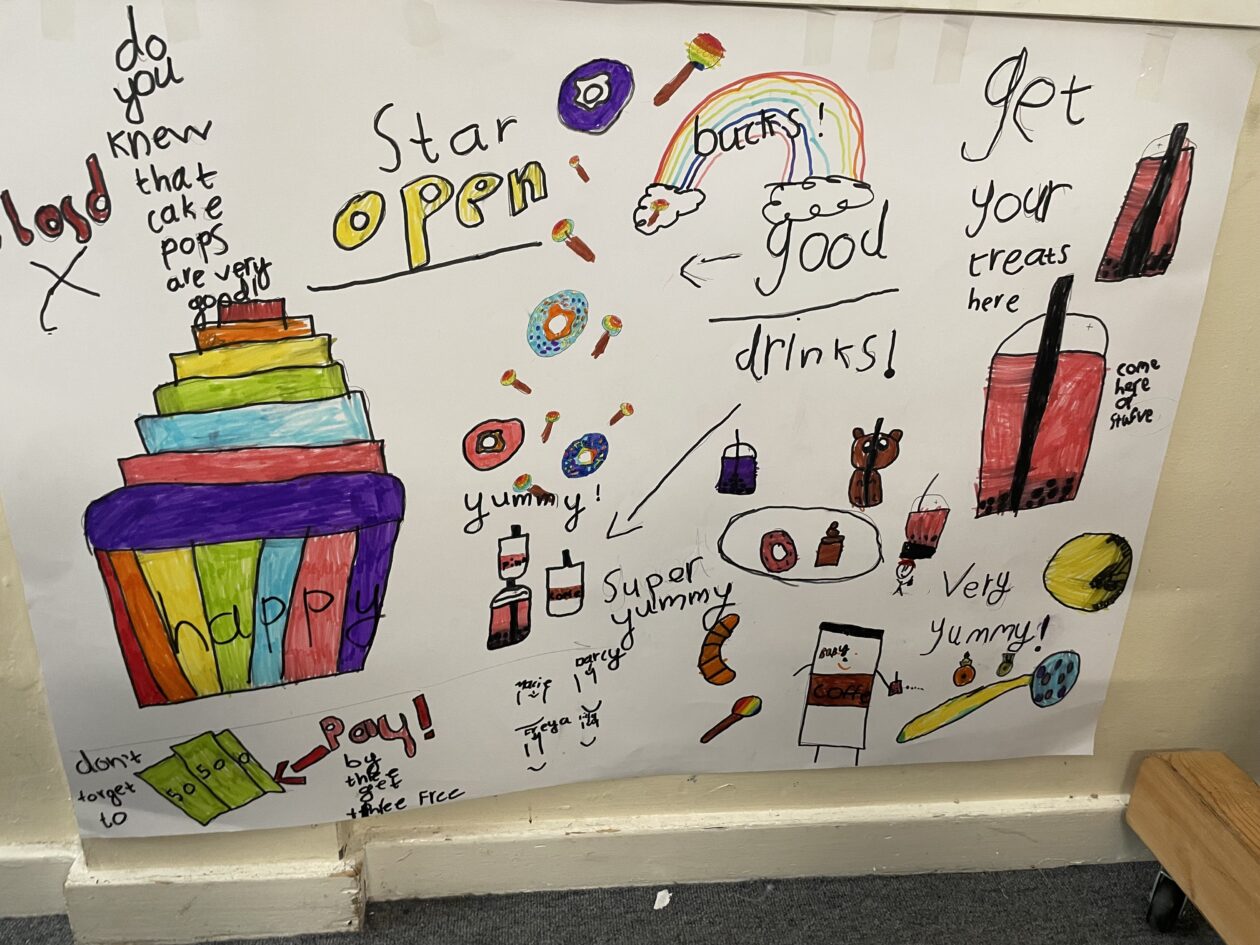 do
you
knew
that
cake
pops
are very
good!
closd
X
Star
open
bucks!
good
drinks!
get
your
treats
here
come
here
or
yummy!
super
yummy
Very
yummy!
happy
Darcy
Marie
Freya
baby
coffe
don't
forget
to
50
50
Pay!
by
thee
get
three free